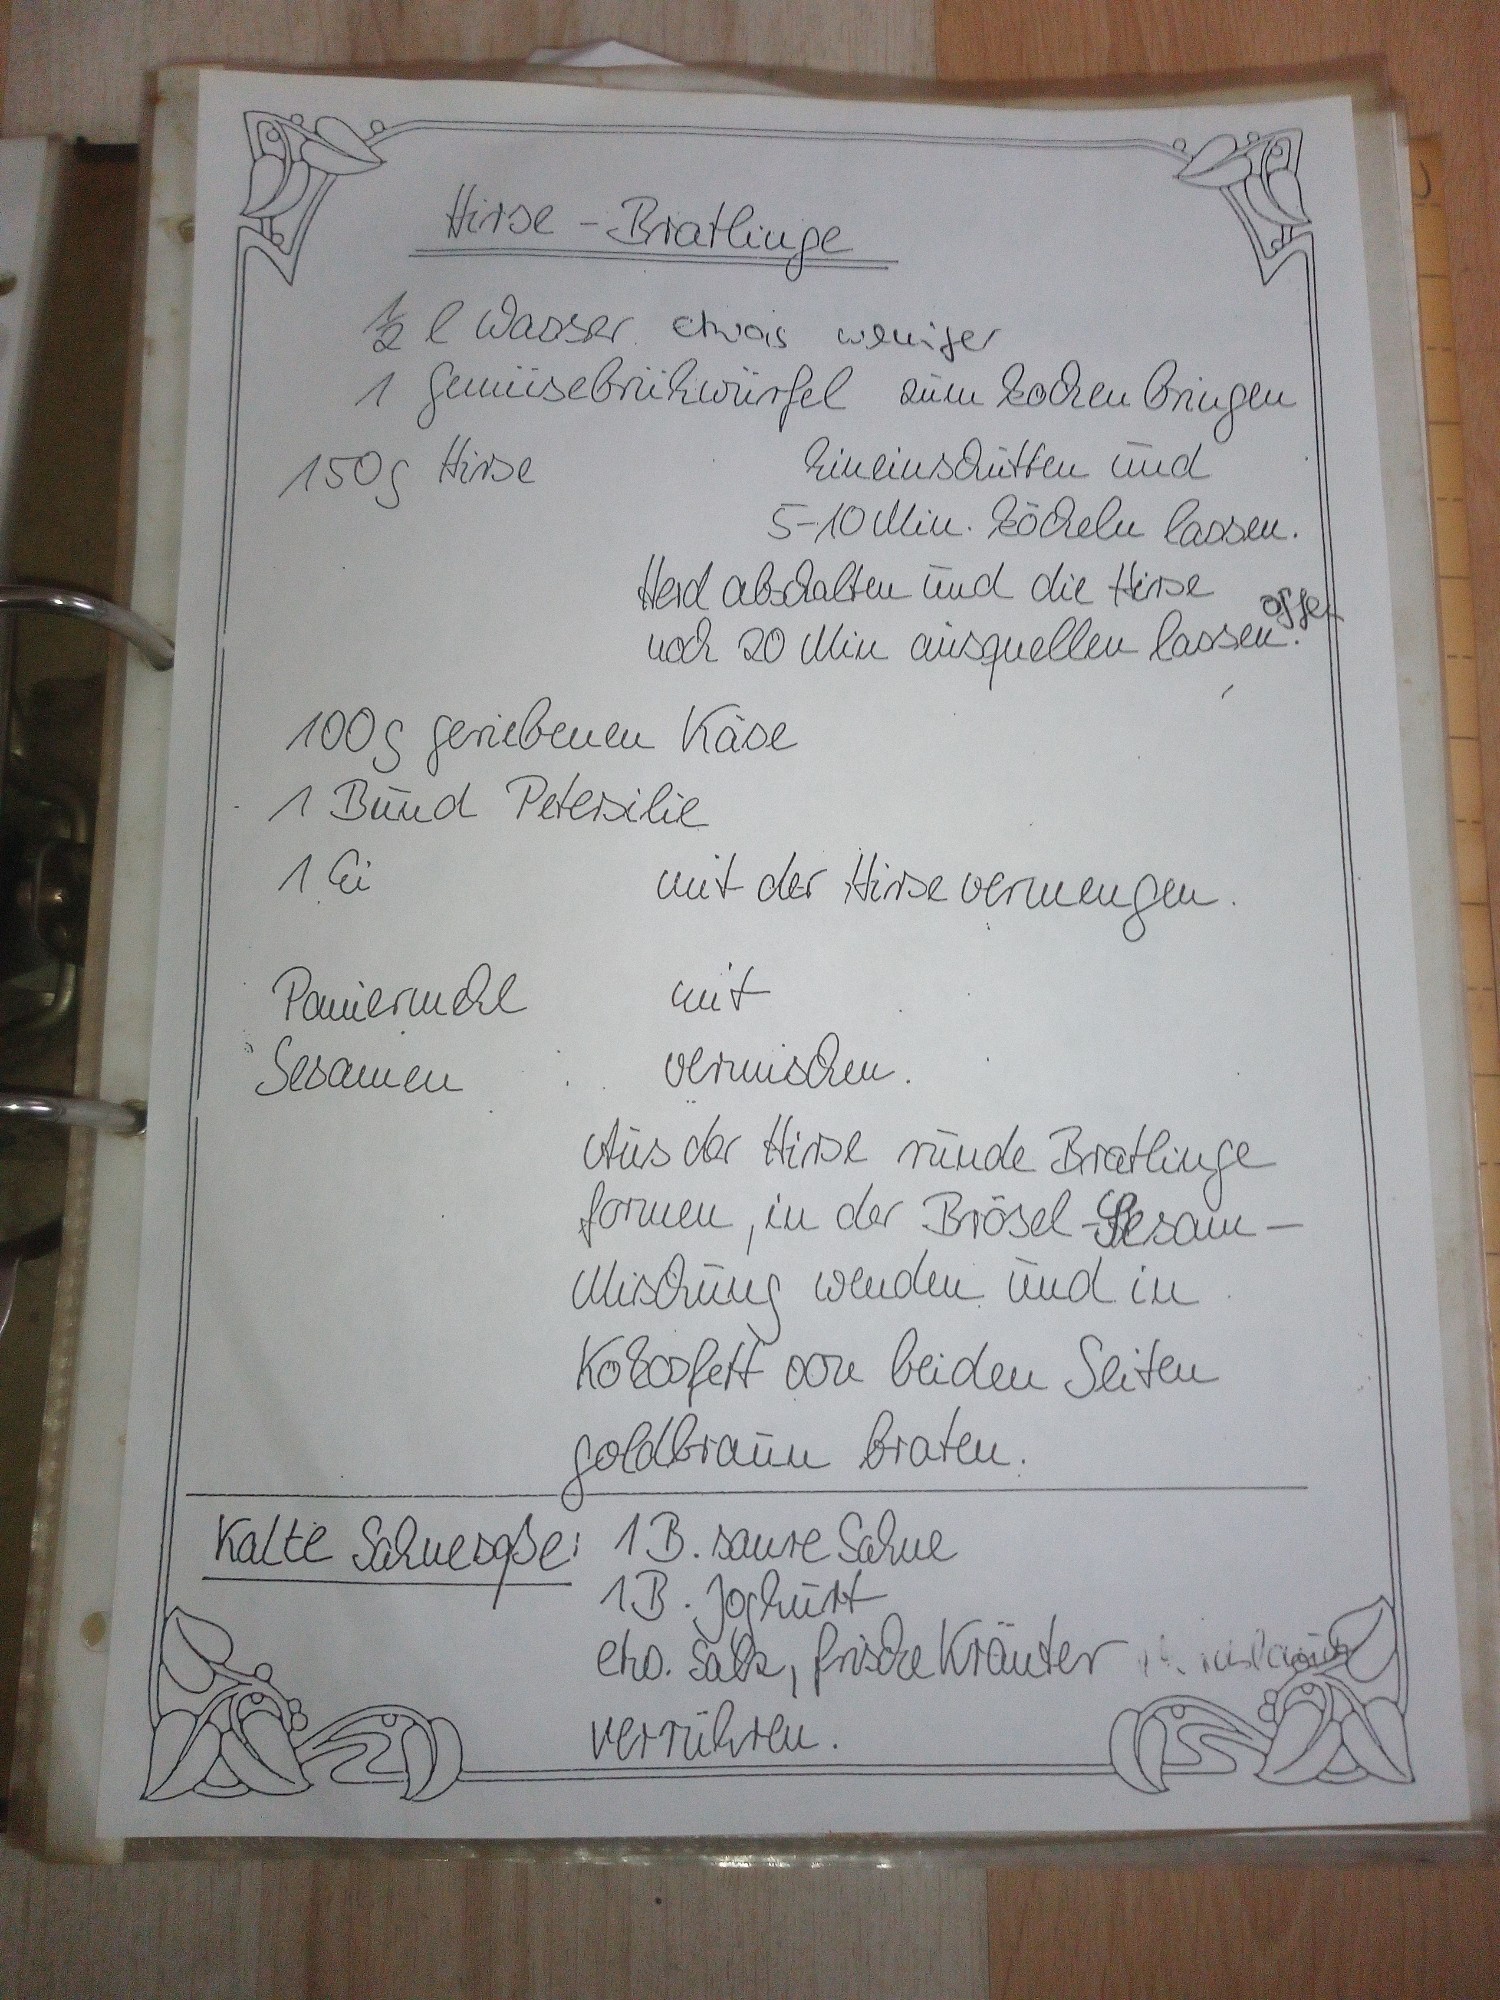 Hirse - Bratlinge
½ l Wasser etwas weniger
1 Gemüsebrühwürfel zum Kochen bringen
150g Hirse hineinschütten und
5-10 Min. köcheln lassen.
Herd abschalten und die Hirse
noch 20 Min ausquellen lassen. offen
100g geriebenen Käse
1 Bund Petersilie
1 Ei mit der Hirse vermengen.
Paniermehl mit
Sesamen vermischen.
Aus der Hirse runde Bratlinge
formen, in der Brösel-Sesam-
Mischung wenden und in
Kokosfett von beiden Seiten
goldbraun braten.
Kalte Sahnesoße: 1 B. saure Sahne
1 B. Joghurt
etw. Salz, frische Kräuter
verrühren.